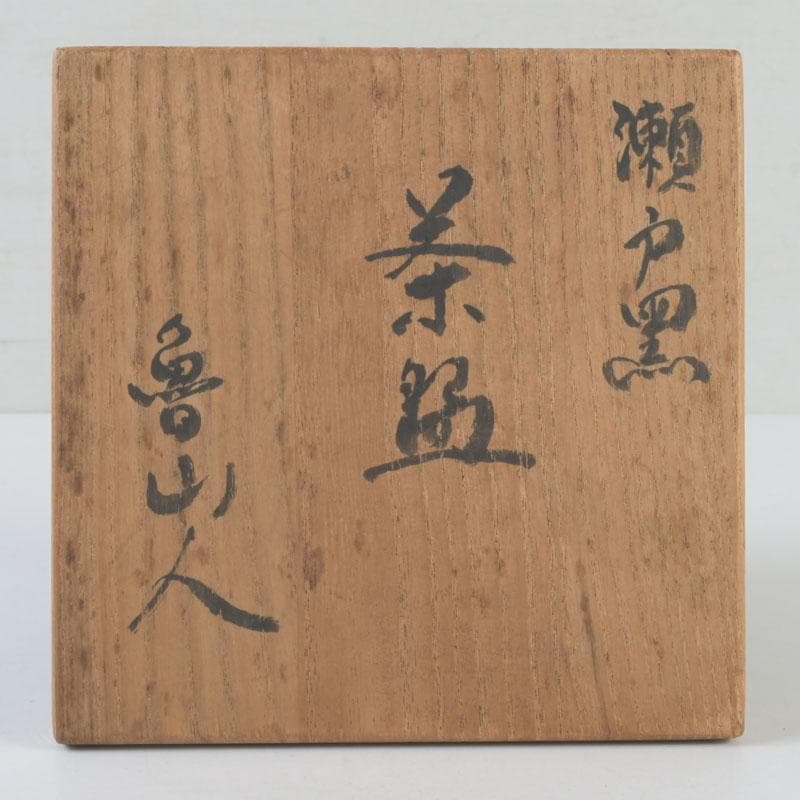 瀬戸黒
茶盌
魯山人